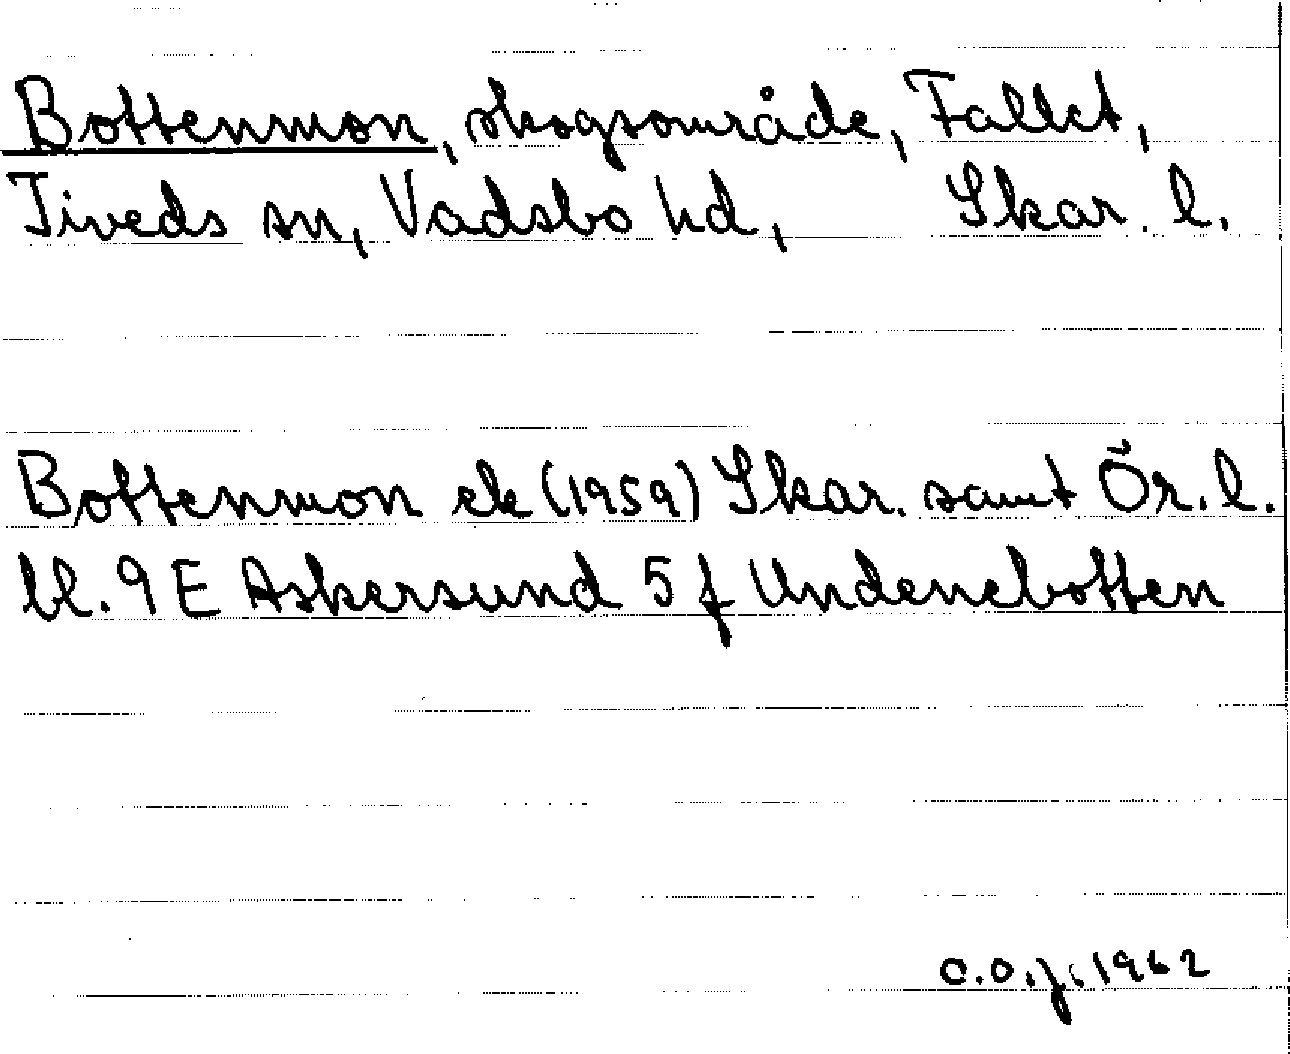 Bottenmon, skogsområde, Fallet,
Tiveds sn, Vadsbo hd, Skar. l.
Bottenmon ek (1959) Skar. samt Ör. l.
bl. 9 E Askersund 5 f Undenebotten
C.O.J. 1962